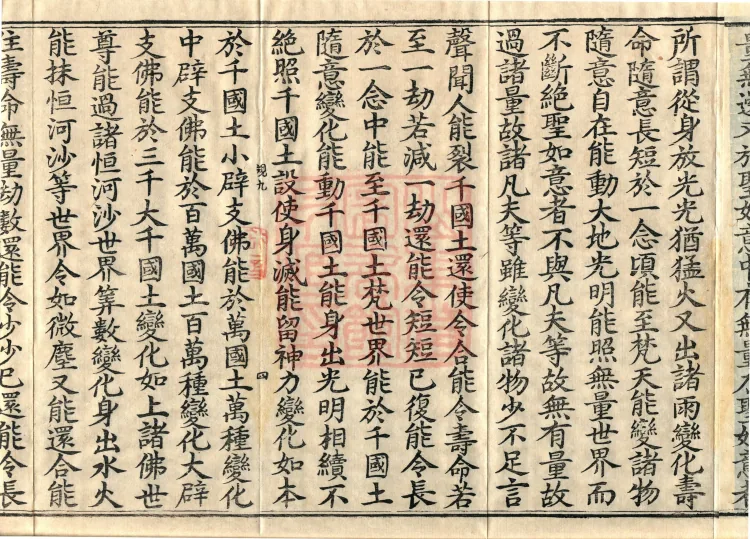 量無邊又於聖如意中有無量力聖如意者
所謂從身放光光猶猛火又出諸雨變化壽
命隨意長短於一念頃能至梵天能變諸物
隨意自在能動大地光明能照無量世界而
不斷絕聖如意者不與凡夫等故無有量故
過諸量故諸凡夫等雖變化諸物少不足言
聲聞人能裂千國土還使令合能令壽命若
至一劫若減一劫還能令短短已復能令長
於一念中能至千國土梵世界能於千國土
隨意變化能動千國土能身出光明相續不
絕照千國土設使身滅能留神力變化如本
九 四
於千國土小辟支佛能於萬國土萬種變化
中辟支佛能於百萬國土百萬種變化大辟
支佛能於三千大千國土變化如上諸佛世
尊能過諸恒河沙世界筭數變化身出水火
能抹恒河沙等世界令如微塵又能還合能
住壽命無量劫數還能令少少已還能令長